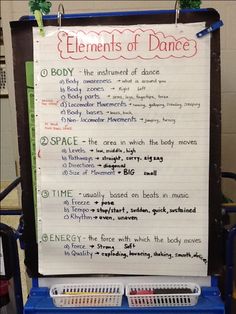 Elements of Dance
① BODY - the instrument of dance
a) Body awareness → what is around you
b) Body zones → Right Left
c) Body parts → arms, legs, fingertips, torso
d) Locomotor Movements → running, galloping, crawling, creeping
e) Body bases → back
f) Non-locomotor Movements → jumping, turning
② SPACE - the area in which the body moves
a) Levels → low, middle, high
b) Pathways → straight, curvy, zig zag
c) Directions → diagonal
d) Size of Movement → BIG small
③ TIME - usually based on beats in music
a) Freeze → pose
b) Tempo → stop/start, sudden, quick, sustained
c) Rhythm → even, uneven
④ ENERGY - the force with which the body moves
a) Force → Strong Soft
b) Quality → exploding, hovering, shaking, smooth,